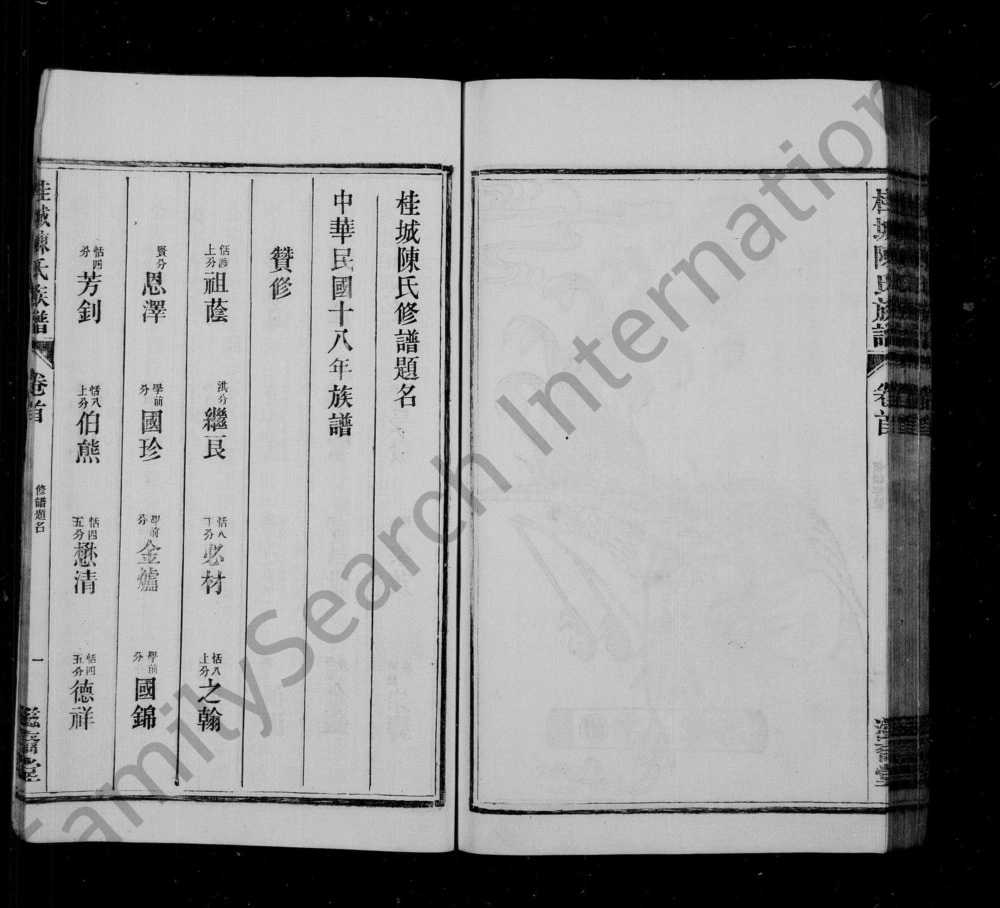 桂城陳氏族譜 卷首
桂城陳氏修譜題名
中華民國十八年族譜
贊修
恬波上分 祖蔭 洪分 繼艮 恬八下分 必材 恬八上分 之翰
賢分 恩澤 學前分 國珍 學前分 金爐 學前分 國錦
恬四分 芳釗 恬八上分 伯熊 恬四五分 懋清 恬四五分 德祥
桂城陳氏族譜 卷首 修譜題名 一
FamilySearch International